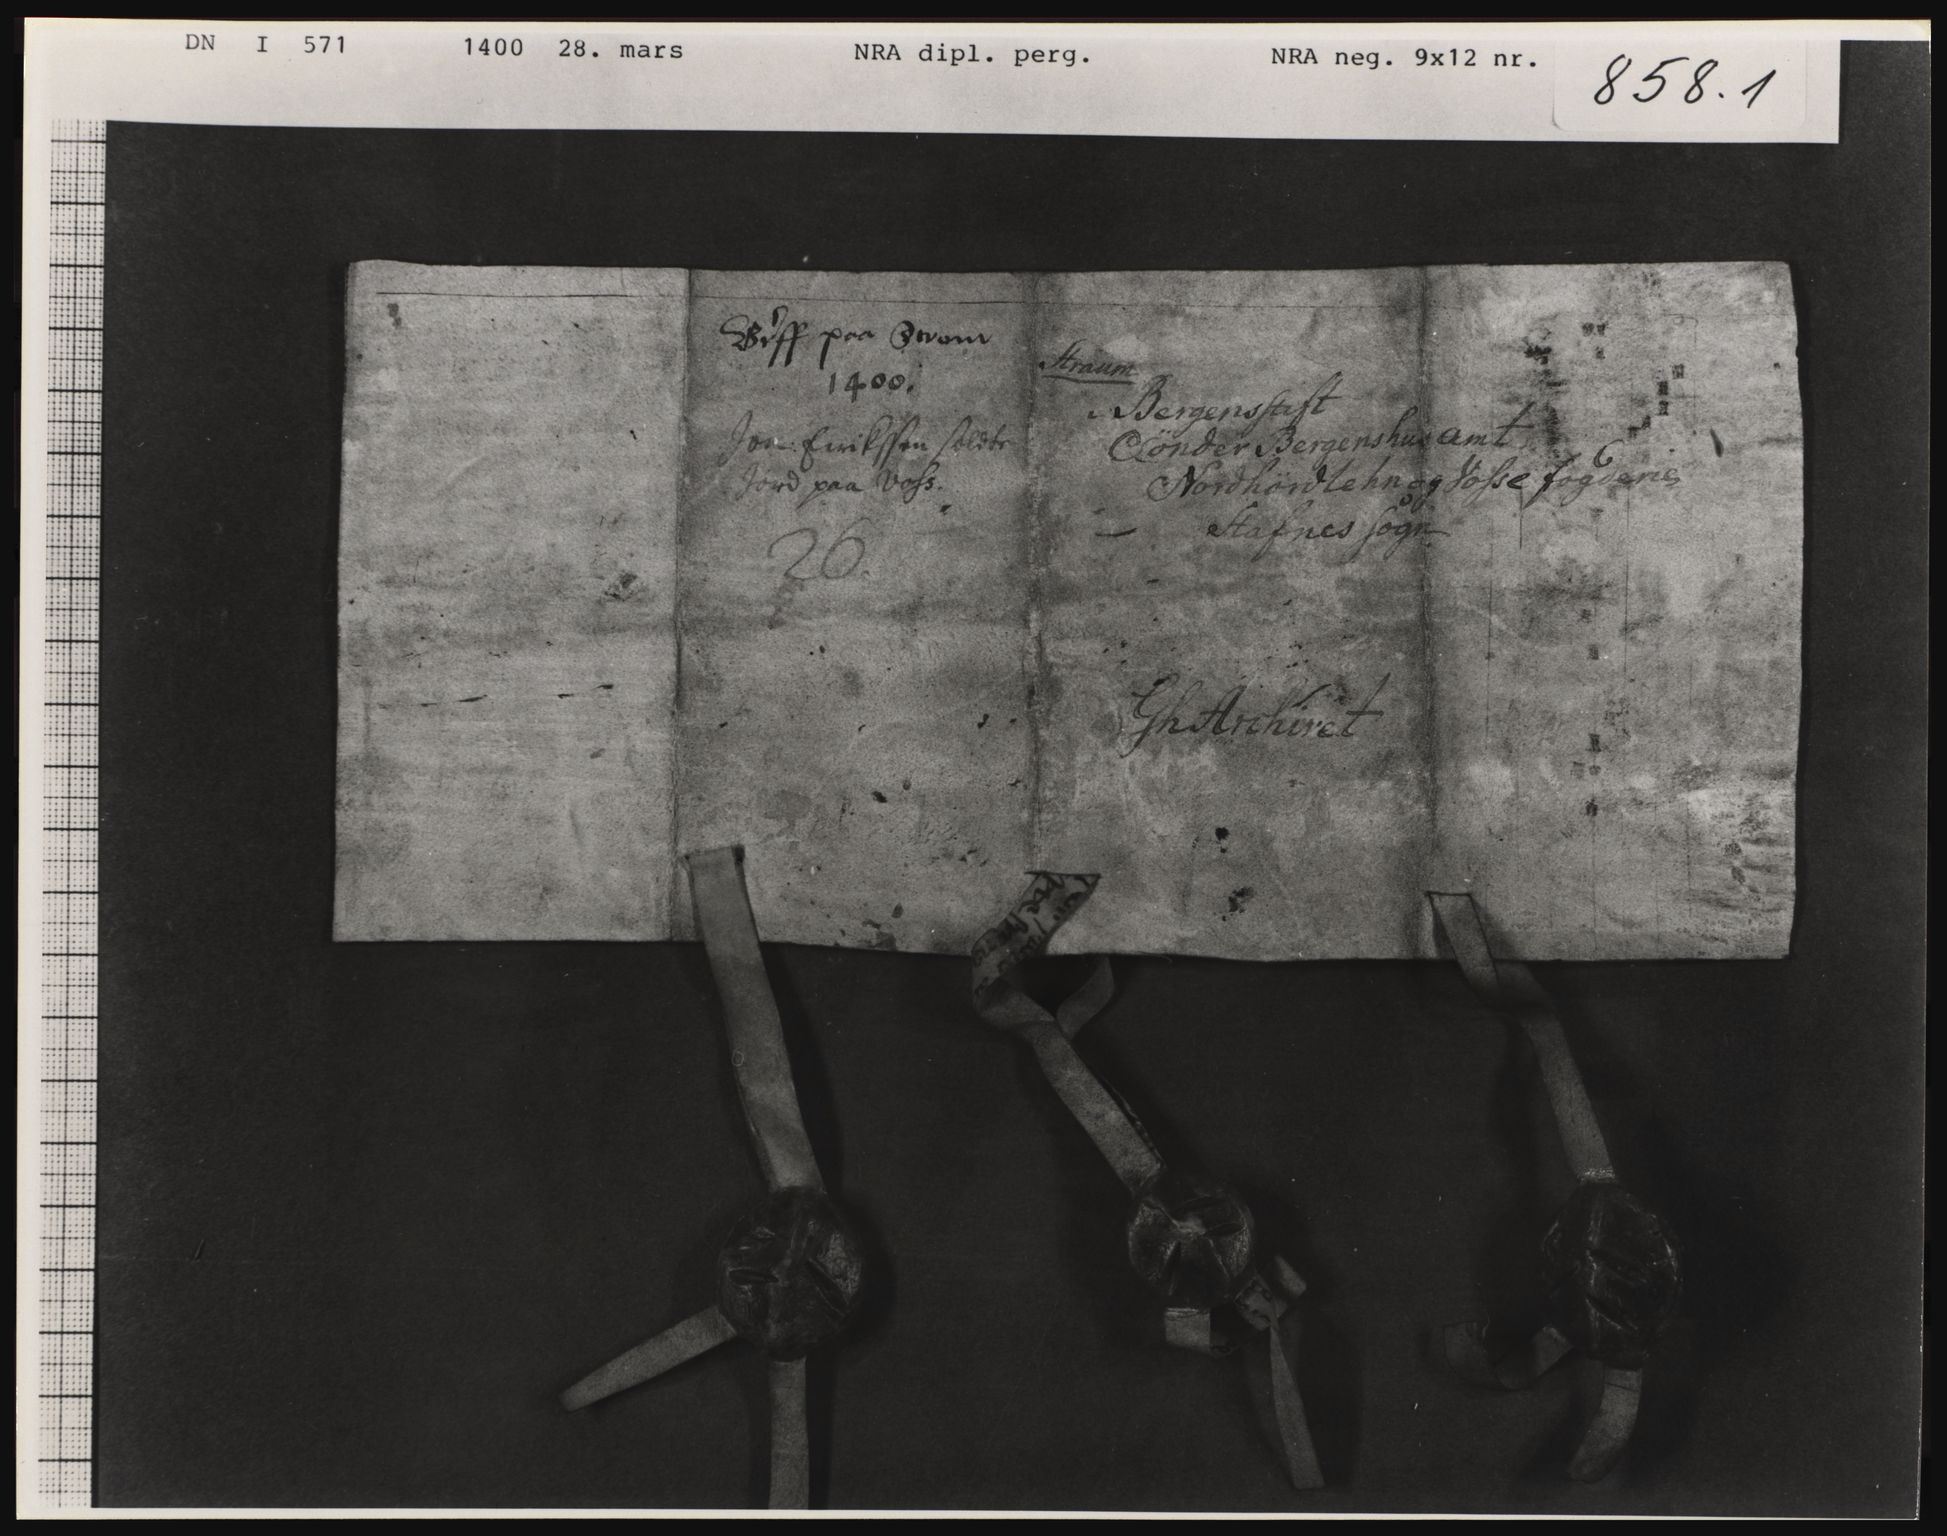 DN I 571 1400 28. mars NRA dipl. perg. NRA neg. 9x12 nr. 858.1
Breff paa Strom
1400.
Jon Eirikssen soldte
Jord paa Voss.
26.
Straum
Bergensstift
Sönder Bergenshus amt
Nordhordlehn og Vosse fogderie
Stafnes sogn
Gh Archivet